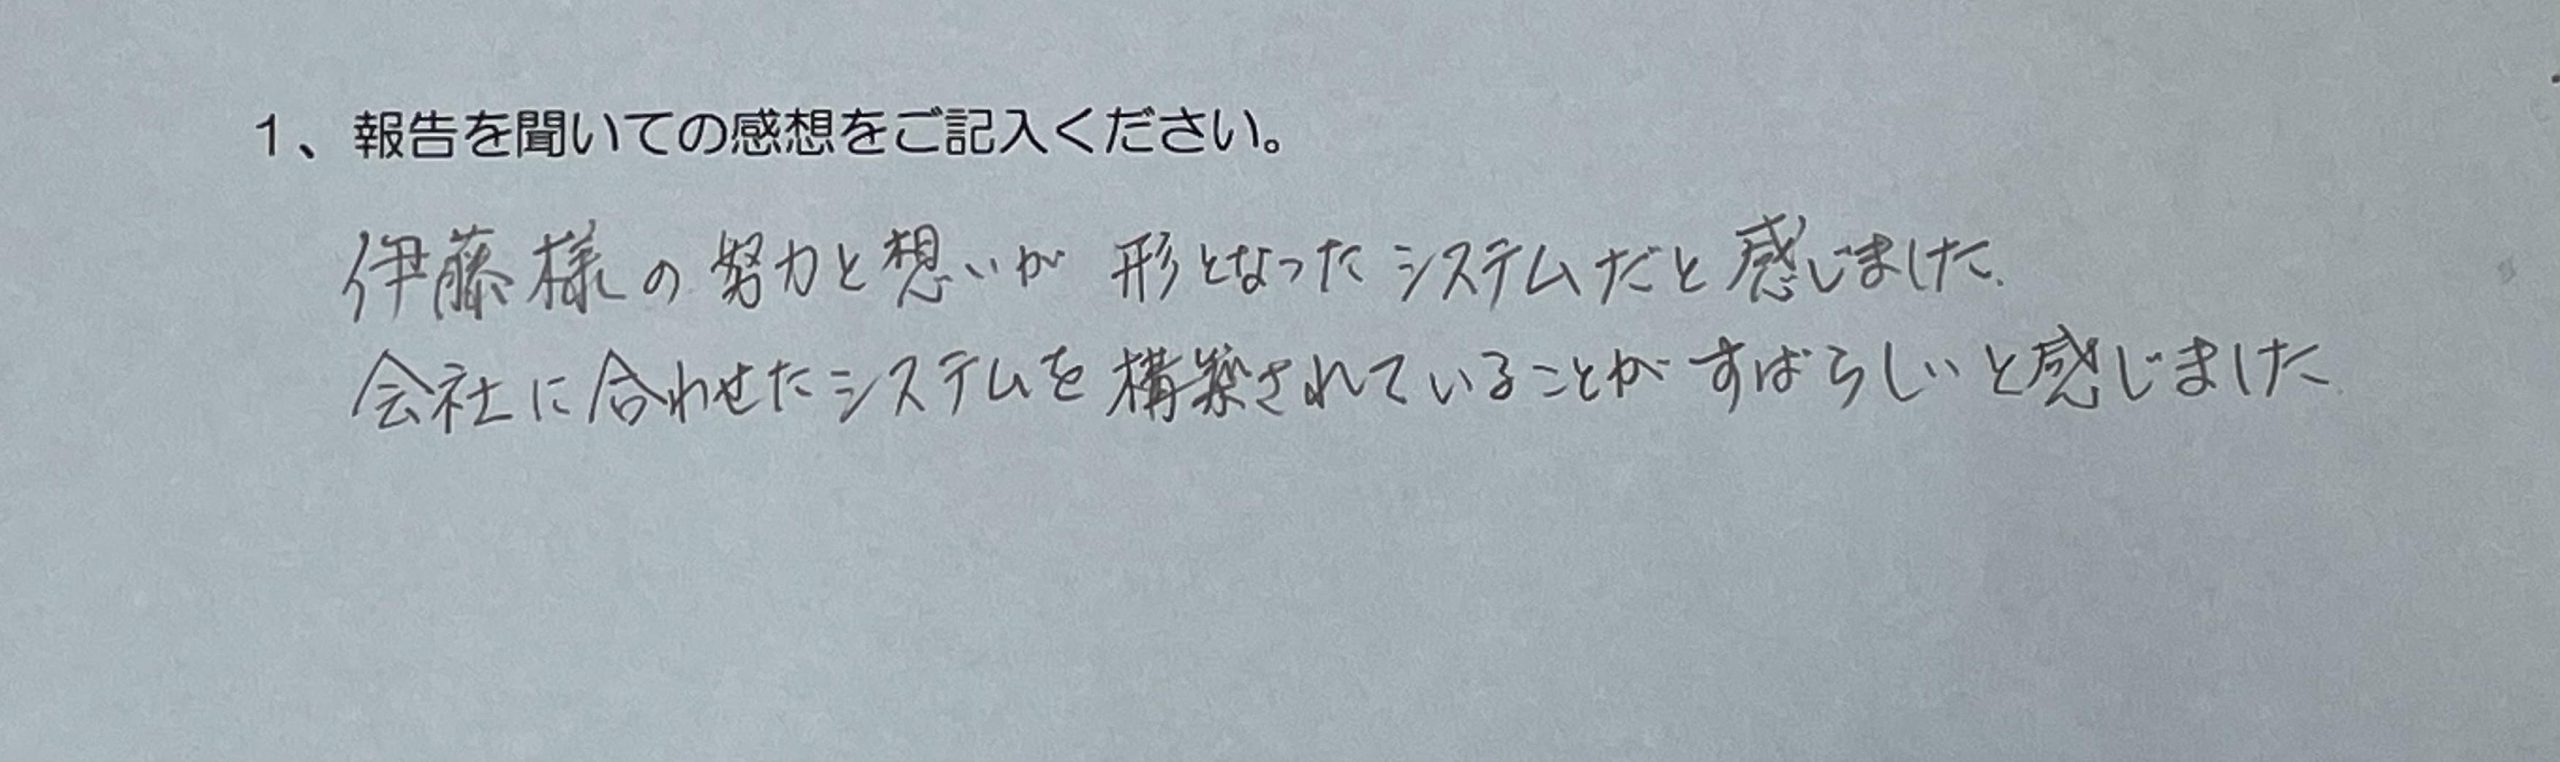 1、報告を聞いての感想をご記入ください。
伊藤様の努力と想いが 形となったシステムだと感じました.
会社に合わせたシステムを構築されていることがすばらしいと感じました.